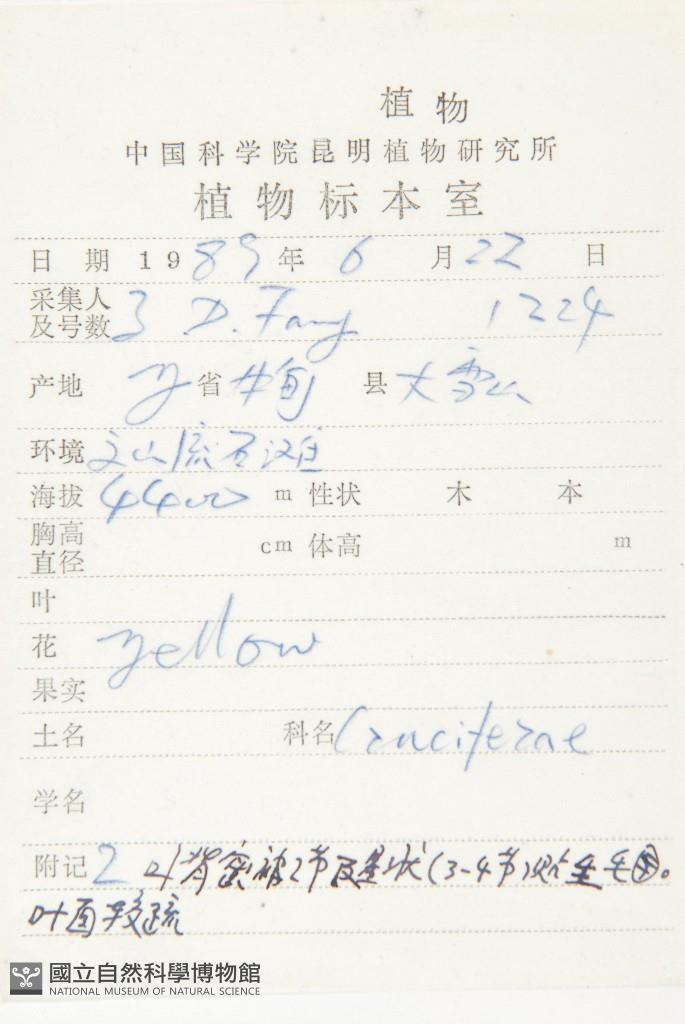 植物
中国科学院昆明植物研究所
植物标本室
日期 1989年 6 月22 日
采集人
及号数 Z. D. Fang 1224
产地 Y 省 中甸 县 大雪山
环境 流石滩
海拔 4400 m 性状 木 本
胸高
直径 cm 体高 m
叶
花 yellow
果实
土名 科名 Cruciferae
学名
附记 2 叶背密被2节及星状(3-4节)
叶面较疏
國立自然科學博物館
NATIONAL MUSEUM OF NATURAL SCIENCE